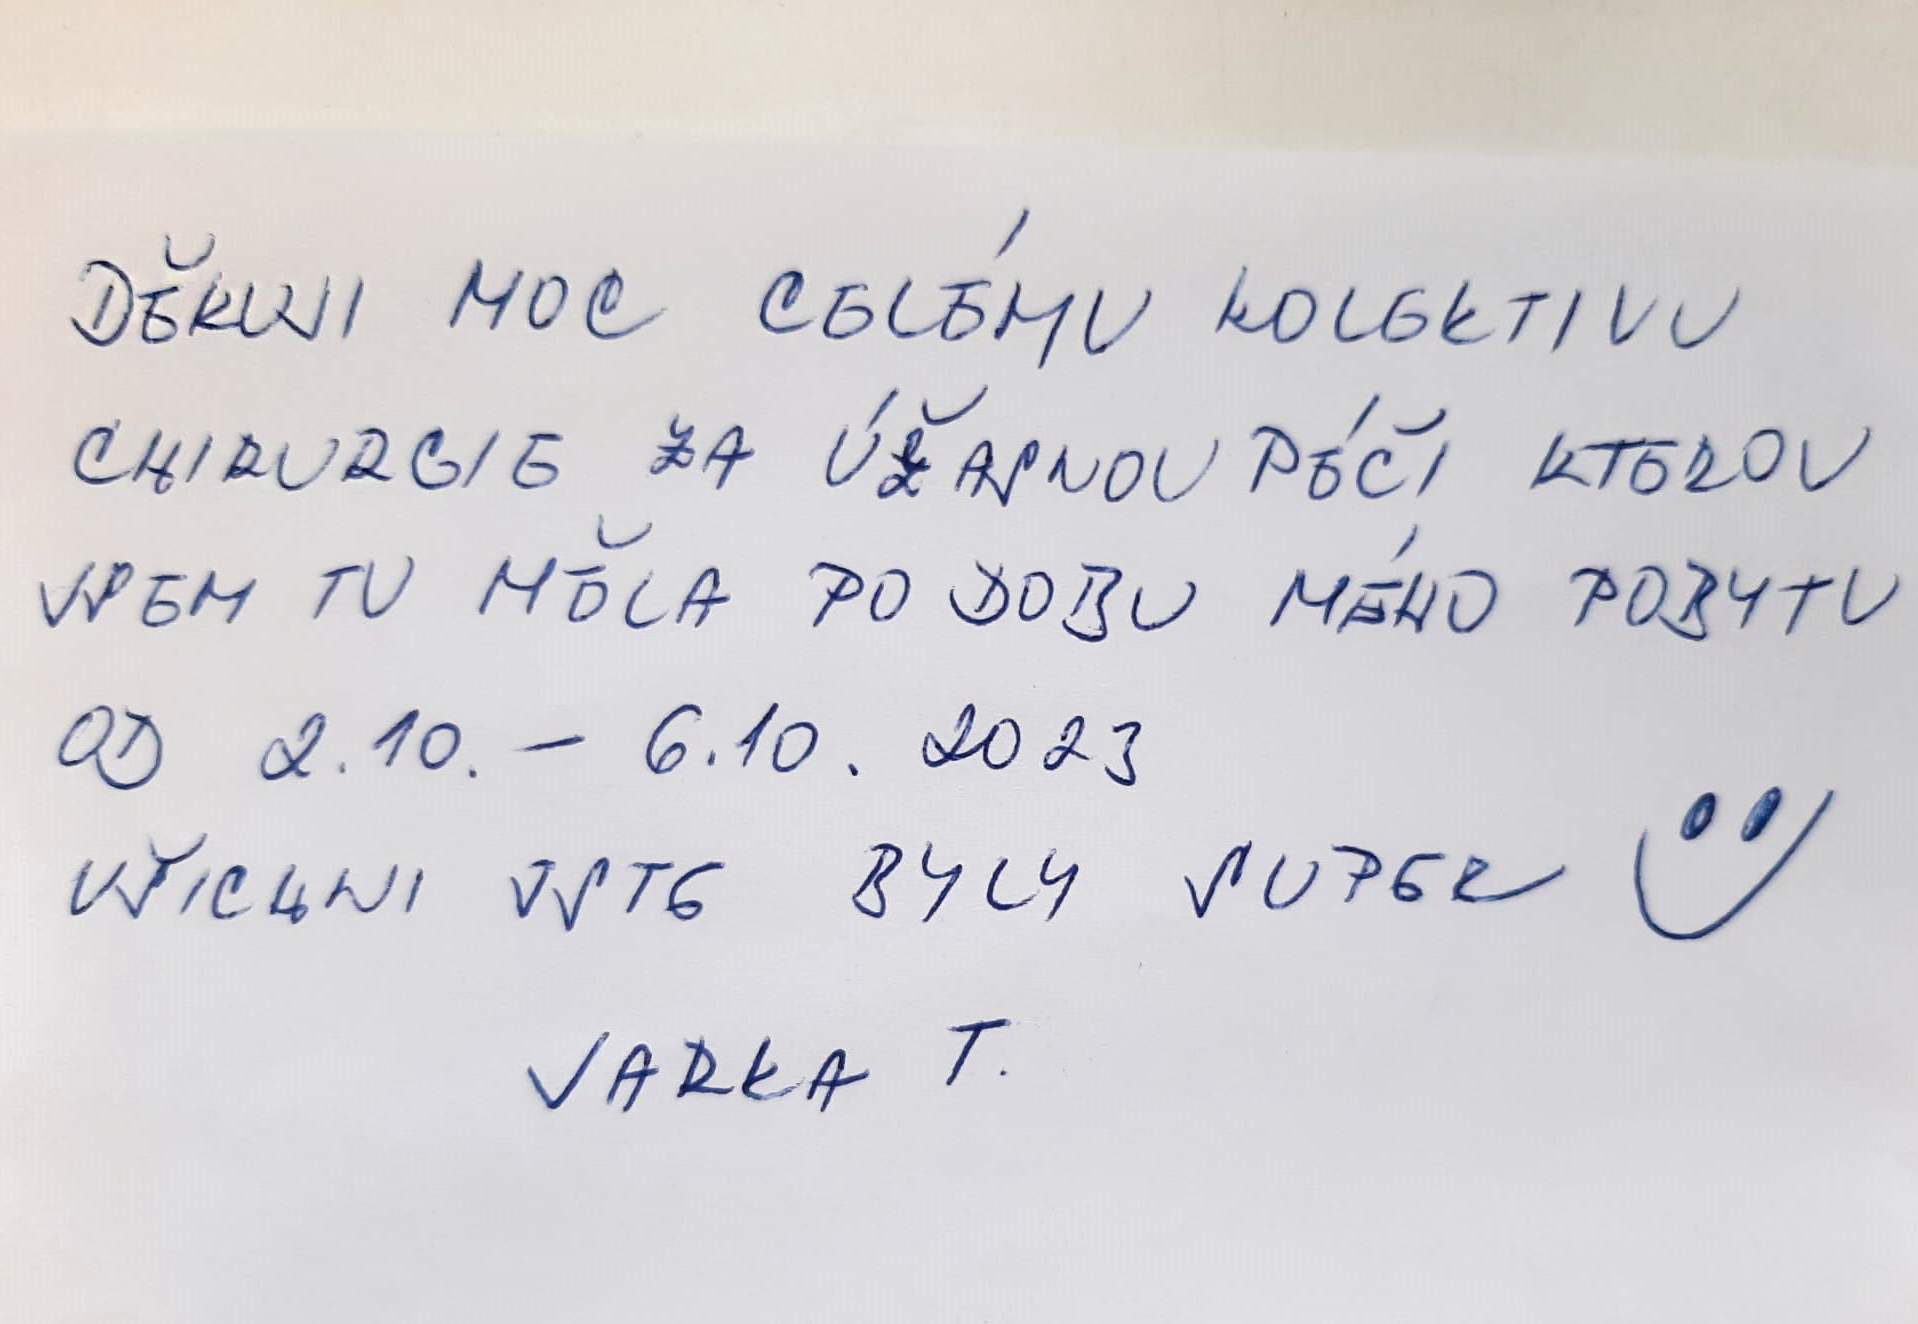 DĚKUJI MOC CELÉMU KOLEKTIVU
CHIRURGIE ZA ÚŽASNOU PÉČI KTEROU
JSEM TU MĚLA PO DOBU MÉHO POBYTU
OD 2.10. – 6.10. 2023
VŠICHNI JSTE BYLY SUPER
JARKA T.